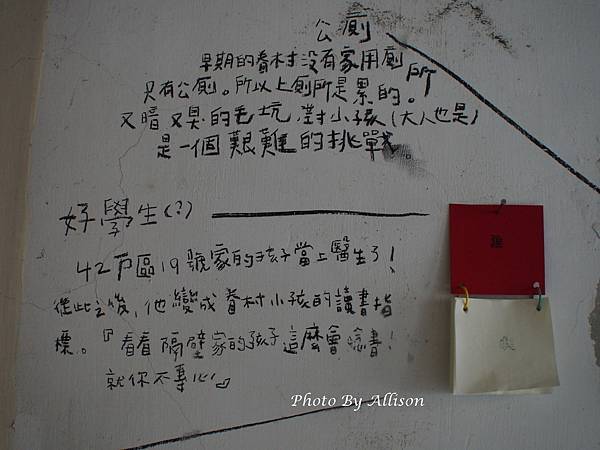 公廁
早期的眷村沒有家用廁所
只有公廁。所以上廁所是累的。
又暗又臭的毛坑,對小孩(大人也是)
是一個艱難的挑戰。
好學生(?)
42戶區19號家的孩子當上醫生了!
從此之後,他變成眷村小孩的讀書指
標。『看看隔壁家的孩子這麼會唸書!
就你不專心!』
Photo By Allison